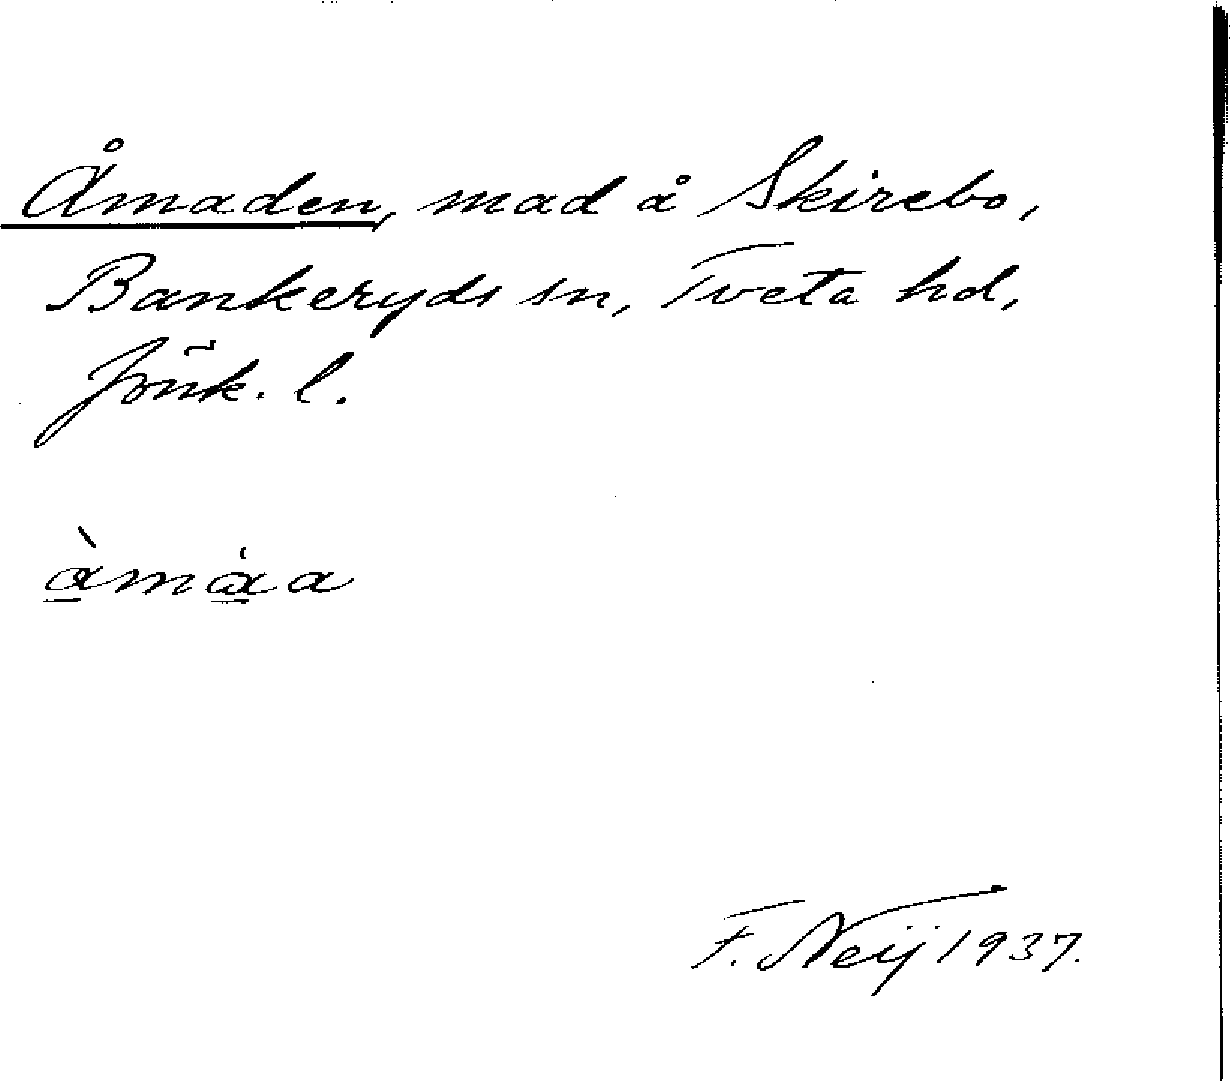 Åmaden, mad å Skirebo,
Bankeryds sn, Tveta hd,
Jönk. l.
àmȧa
F. Neij 1937.